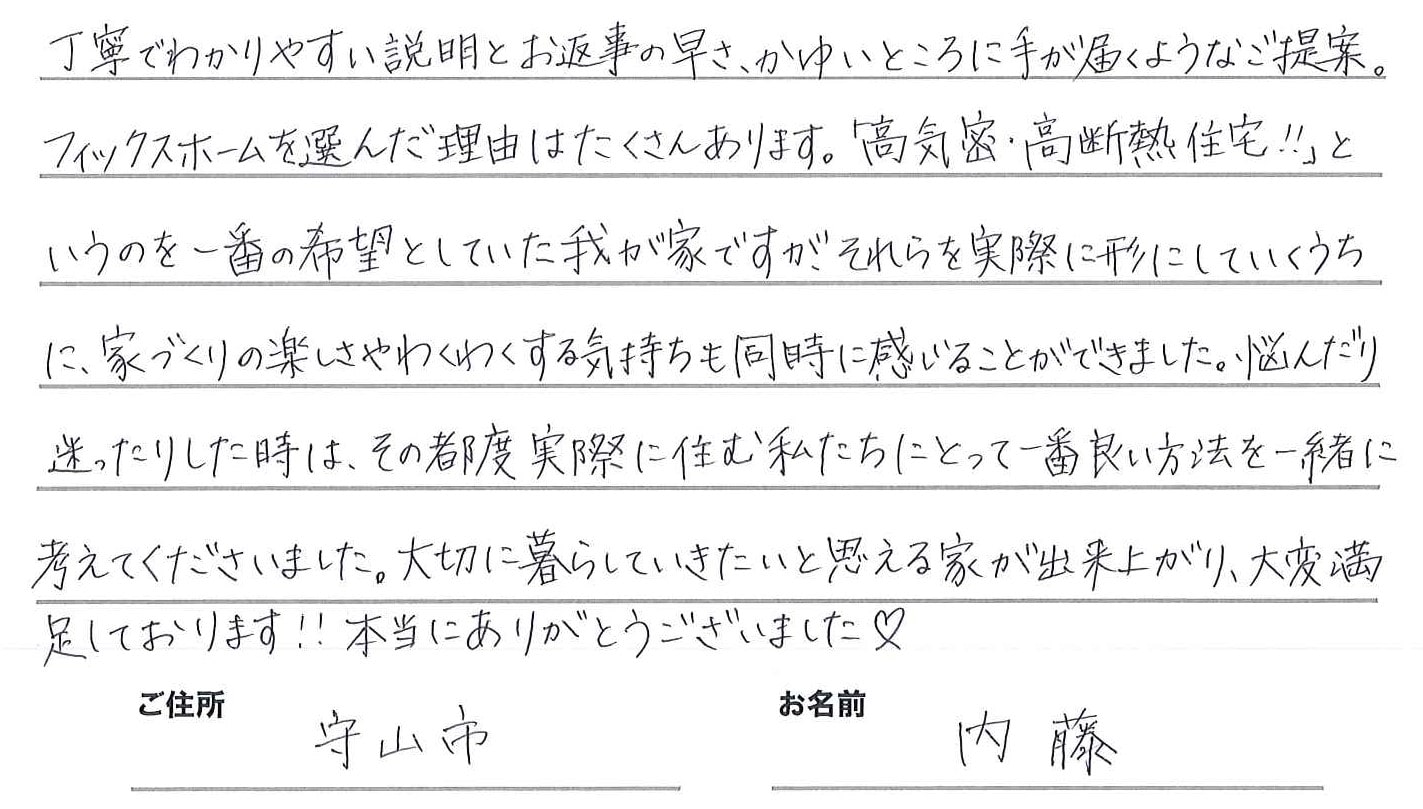 丁寧でわかりやすい説明とお返事の早さ、かゆいところに手が届くようなご提案。
フィックスホームを選んだ理由はたくさんあります。「高気密・高断熱住宅!!」と
いうのを一番の希望としていた我が家ですが、それらを実際に形にしていくうち
に、家づくりの楽しさやわくわくする気持ちも同時に感じることができました。悩んだり
迷ったりした時は、その都度実際に住む私たちにとって一番良い方法を一緒に
考えてくださいました。大切に暮らしていきたいと思える家が出来上がり、大変満
足しております!!本当にありがとうございました♡
ご住所 守山市 お名前 内藤